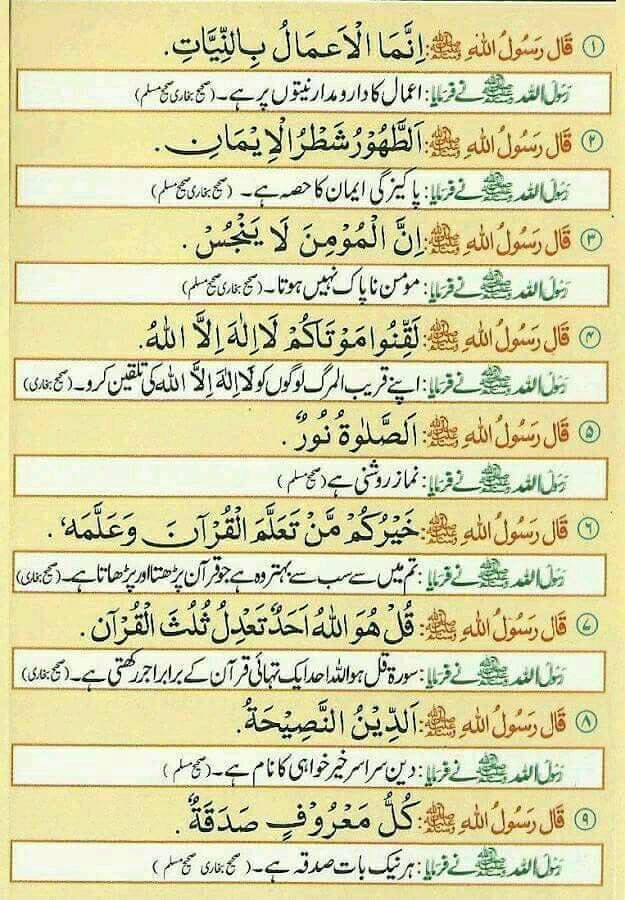 ① قَالَ رَسُولُ اللهِ ﷺ: اِنَّمَا الْاَعمَالُ بِالنِّيَّاتِ.
رَسُولُ اللہ ﷺ نے فرمایا: اعمال کا دارومدار نیتوں پر ہے۔ (صحیح بخاری صحیح مسلم)
② قَالَ رَسُولُ اللهِ ﷺ: اَلطَّهُوْرُ شَطْرُ الْاِيْمَانِ.
رَسُولُ اللہ ﷺ نے فرمایا: پاکیزگی ایمان کا حصہ ہے۔ (صحیح بخاری صحیح مسلم)
③ قَالَ رَسُولُ اللهِ ﷺ: اِنَّ الْمُوْمِنَ لَا يَنْجُسْ.
رَسُولُ اللہ ﷺ نے فرمایا: مومن ناپاک نہیں ہوتا۔ (صحیح بخاری صحیح مسلم)
④ قَالَ رَسُولُ اللهِ ﷺ: لَقِّنُوا مَوْتَاكُمْ لَا اِلٰهَ اِلَّا اللهُ.
رَسُولُ اللہ ﷺ نے فرمایا: اپنے قریب المرگ لوگوں کو لَا اِلٰهَ اِلَّا اللهُ کی تلقین کرو۔ (صحیح بخاری)
⑤ قَالَ رَسُولُ اللهِ ﷺ: اَلصَّلٰوةُ نُورٌ.
رَسُولُ اللہ ﷺ نے فرمایا: نماز روشنی ہے (صحیح مسلم)
⑥ قَالَ رَسُولُ اللهِ ﷺ: خَيْرُكُمْ مَّنْ تَعَلَّمَ الْقُرْآنَ وَعَلَّمَهٗ.
رَسُولُ اللہ ﷺ نے فرمایا: تم میں سے سب سے بہتر وہ ہے جو قرآن پڑھتا اور پڑھاتا ہے۔ (صحیح بخاری)
⑦ قَالَ رَسُولُ اللهِ ﷺ: قُلْ هُوَ اللهُ اَحَدٌ تَعْدِلُ ثُلُثَ الْقُرْآنِ.
رَسُولُ اللہ ﷺ نے فرمایا: سورۃ قل ہو اللہ احد ایک تہائی قرآن کے برابر اجر رکھتی ہے۔ (صحیح بخاری)
⑧ قَالَ رَسُولُ اللهِ ﷺ: اَلدِّيْنُ النَّصِيْحَةُ.
رَسُولُ اللہ ﷺ نے فرمایا: دین سراسر خیر خواہی کا نام ہے۔ (صحیح مسلم)
⑨ قَالَ رَسُولُ اللهِ ﷺ: كُلُّ مَعْرُوْفٍ صَدَقَةٌ.
رَسُولُ اللہ ﷺ نے فرمایا: ہر نیک بات صدقہ ہے۔ (صحیح بخاری صحیح مسلم)